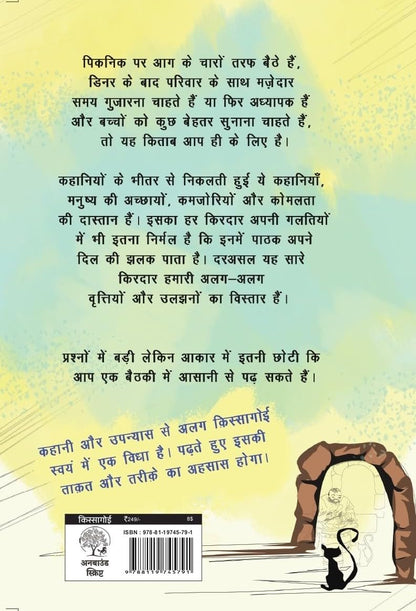 पिकनिक पर आग के चारों तरफ बैठे हैं,
डिनर के बाद परिवार के साथ मज़ेदार
समय गुजारना चाहते हैं या फिर अध्यापक हैं
और बच्चों को कुछ बेहतर सुनाना चाहते हैं,
तो यह किताब आप ही के लिए है।
कहानियों के भीतर से निकलती हुई ये कहानियाँ,
मनुष्य की अच्छायों, कमजोरियों और कोमलता
की दास्तान हैं। इसका हर किरदार अपनी गलतियों
में भी इतना निर्मल है कि इनमें पाठक अपने
दिल की झलक पाता है। दरअसल यह सारे
किरदार हमारी अलग–अलग
वृत्तियों और उलझनों का विस्तार हैं।
प्रश्नों में बड़ी लेकिन आकार में इतनी छोटी कि
आप एक बैठकी में आसानी से पढ़ सकते हैं।
कहानी और उपन्यास से अलग किस्सागोई
स्वयं में एक विधा है। पढ़ते हुए इसकी
ताक़त और तरीक़े का अहसास होगा।
किस्सागोई ₹249/- 8$
ISBN : 978-81-19745-79-1
अनबाउंड
स्क्रिप्ट
9788119745791